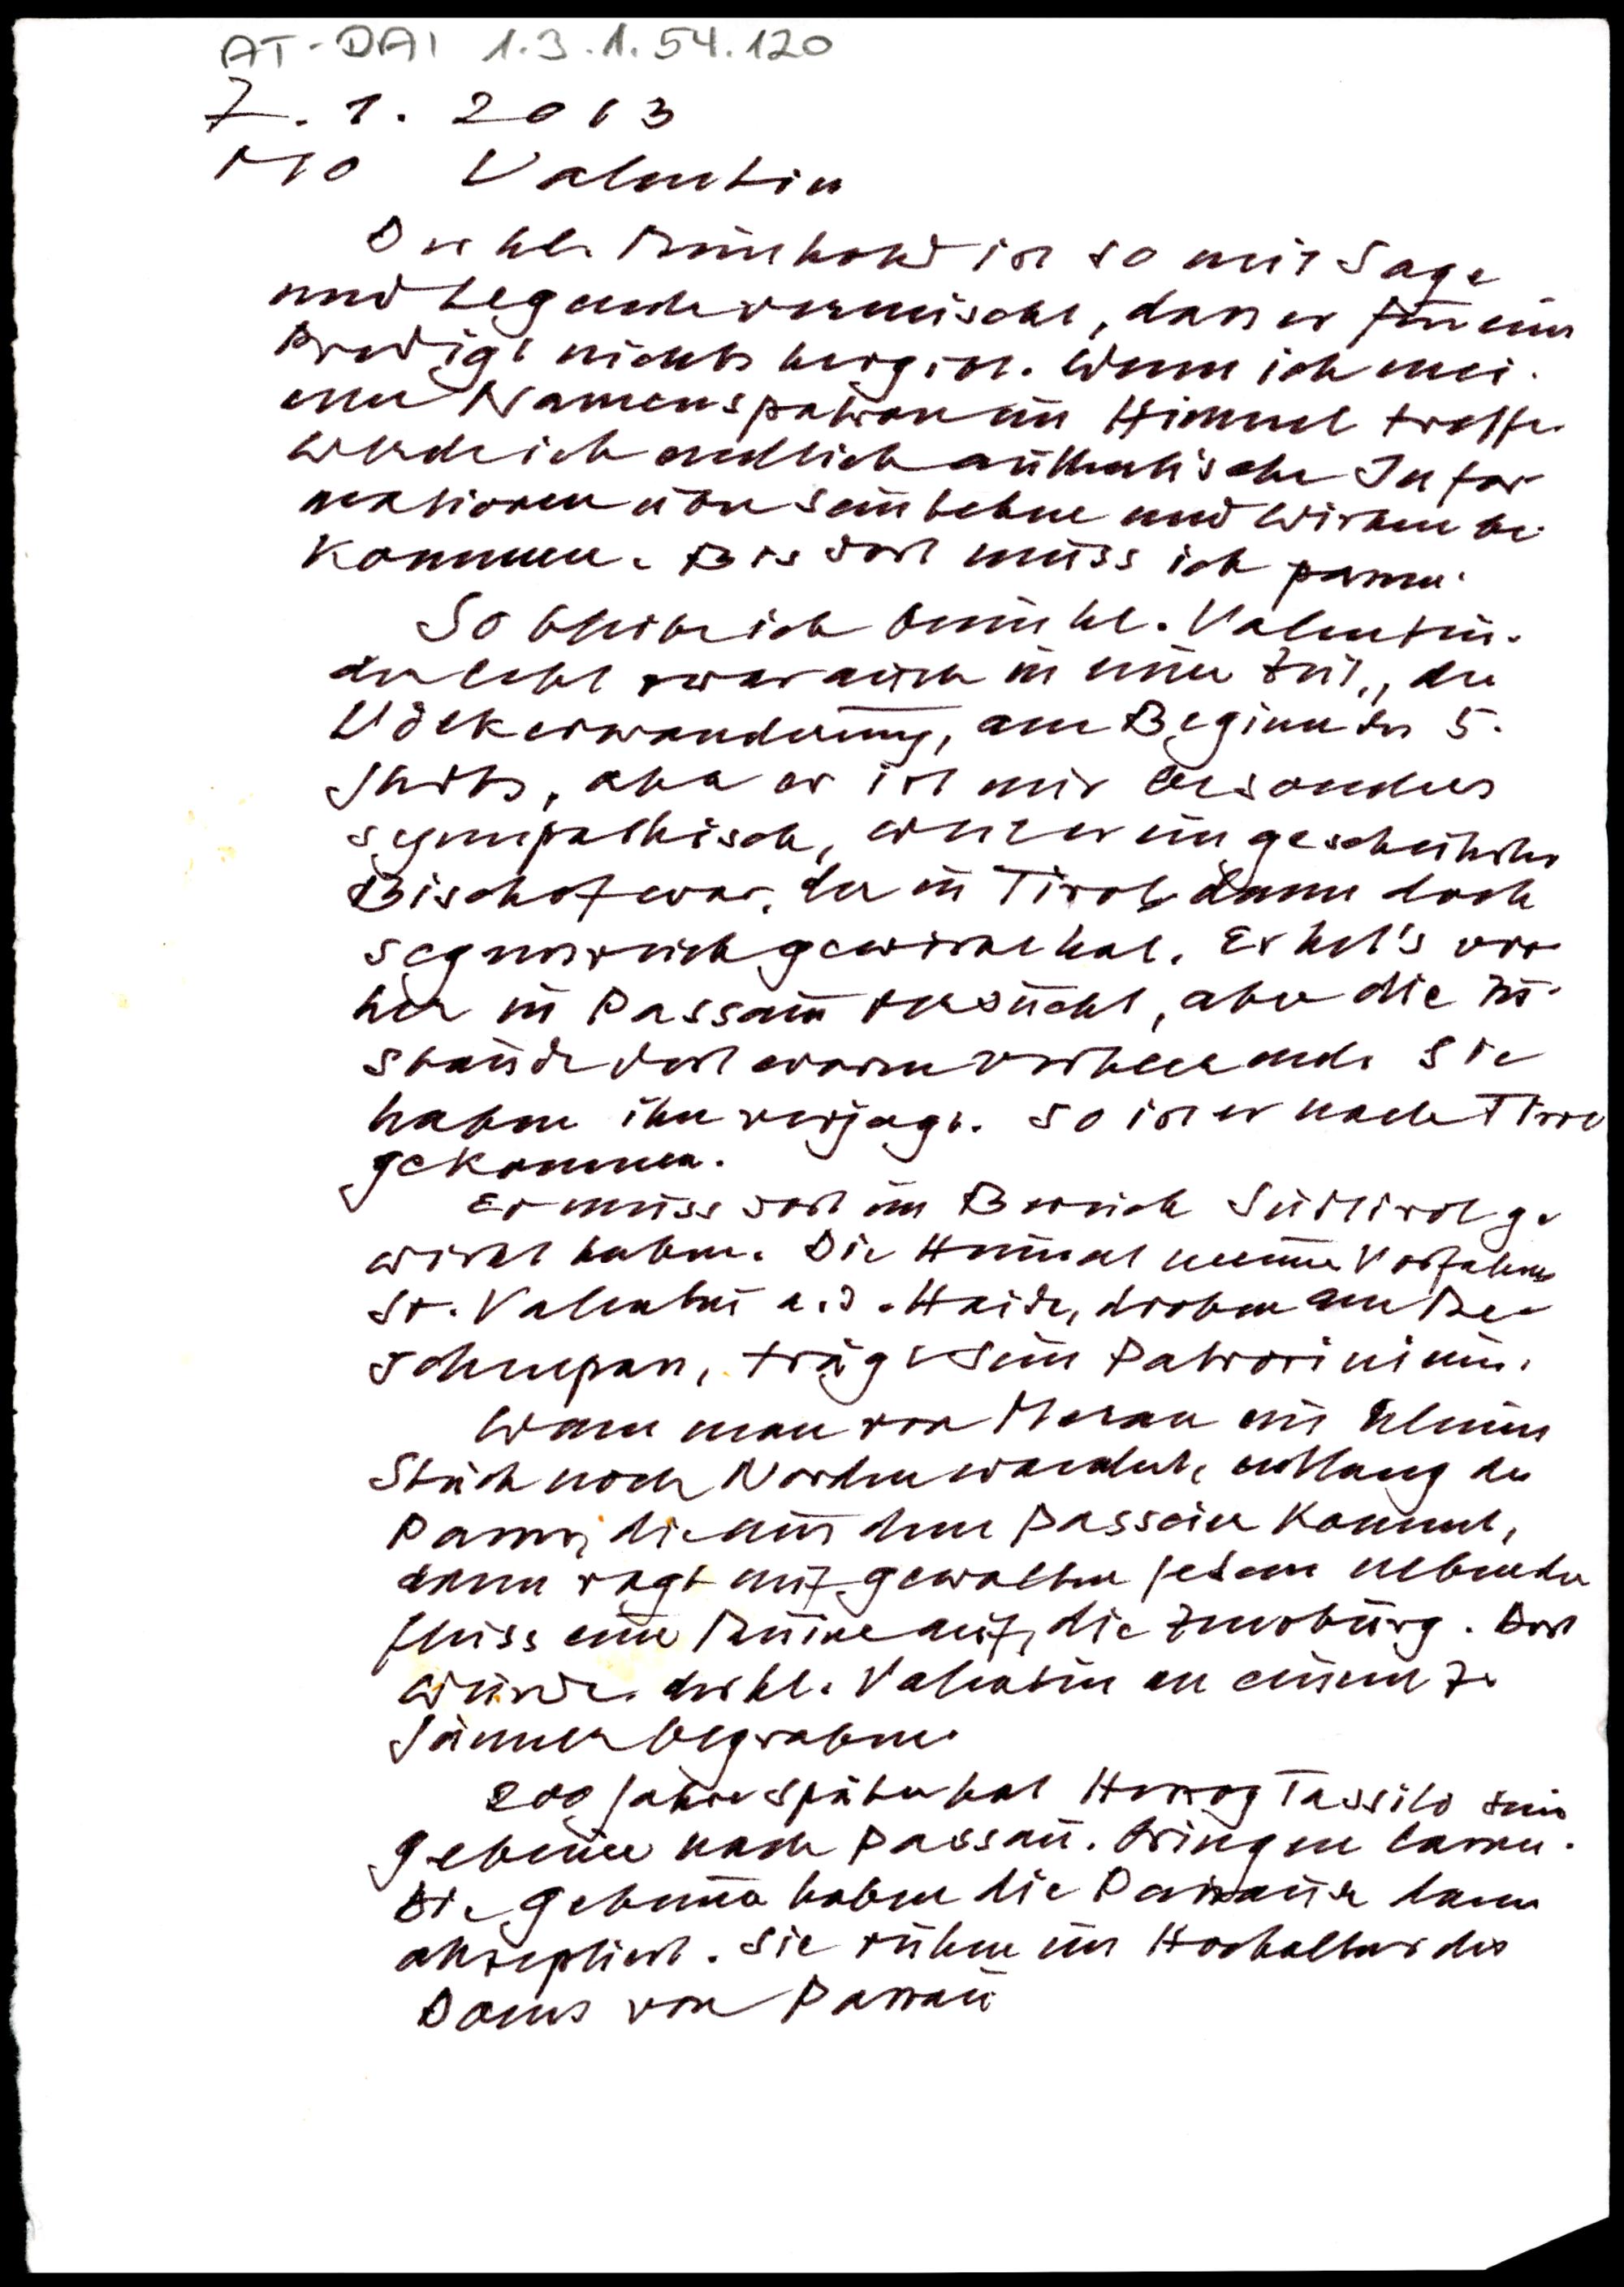 AT-DAI 1.3.1.54.120
7. 1. 2013
MO Valentin
Der hl. Reinhold ist so mit Sage
und Legende vermischt, dass er für eine
Predigt nichts hergibt. Wenn ich mei-
nen Namenspatron im Himmel treffe
werde ich endlich authentische Infor
mationen über sein Leben und Wirken be-
kommen. Bis dort muss ich passen.
So bleibe ich beim hl. Valentin.
der lebt zwar auch in einer Zeit, der
Völkerwanderung, am Beginn des 5.
Jhdts, aber er ist mir besonders
sympathisch, weil er ein gescheiterter
Bischof war, der in Tirol dann doch
segensreich gewirkt hat. Er hat's vor
her in Passau versucht, aber die Zu-
stände dort waren verheerend. Sie
haben ihn verjagt. So ist er nach Tirol
gekommen.
Er muss dort im Bereich Südtirol ge
wirkt haben. Die Heimat meiner Vorfahren
St. Valentin a.d. Haide, droben am Re-
schenpass, trägt sein Patrozinium.
Wenn man von Meran ein kleines
Stück nach Norden wandert, entlang der
Passer, die aus dem Passeier kommt,
dann ragt auf gewaltigen Felsen neben dem
Fluss eine Ruine auf, die Zenoburg. Dort
wurde der hl. Valentin an einem 7.
Jänner begraben.
200 Jahre später hat Herzog Tassilo seine
Gebeine nach Passau bringen lassen.
Die Gebeine haben die Passauer dann
akzeptiert. Sie ruhen im Hochaltar des
Doms von Passau